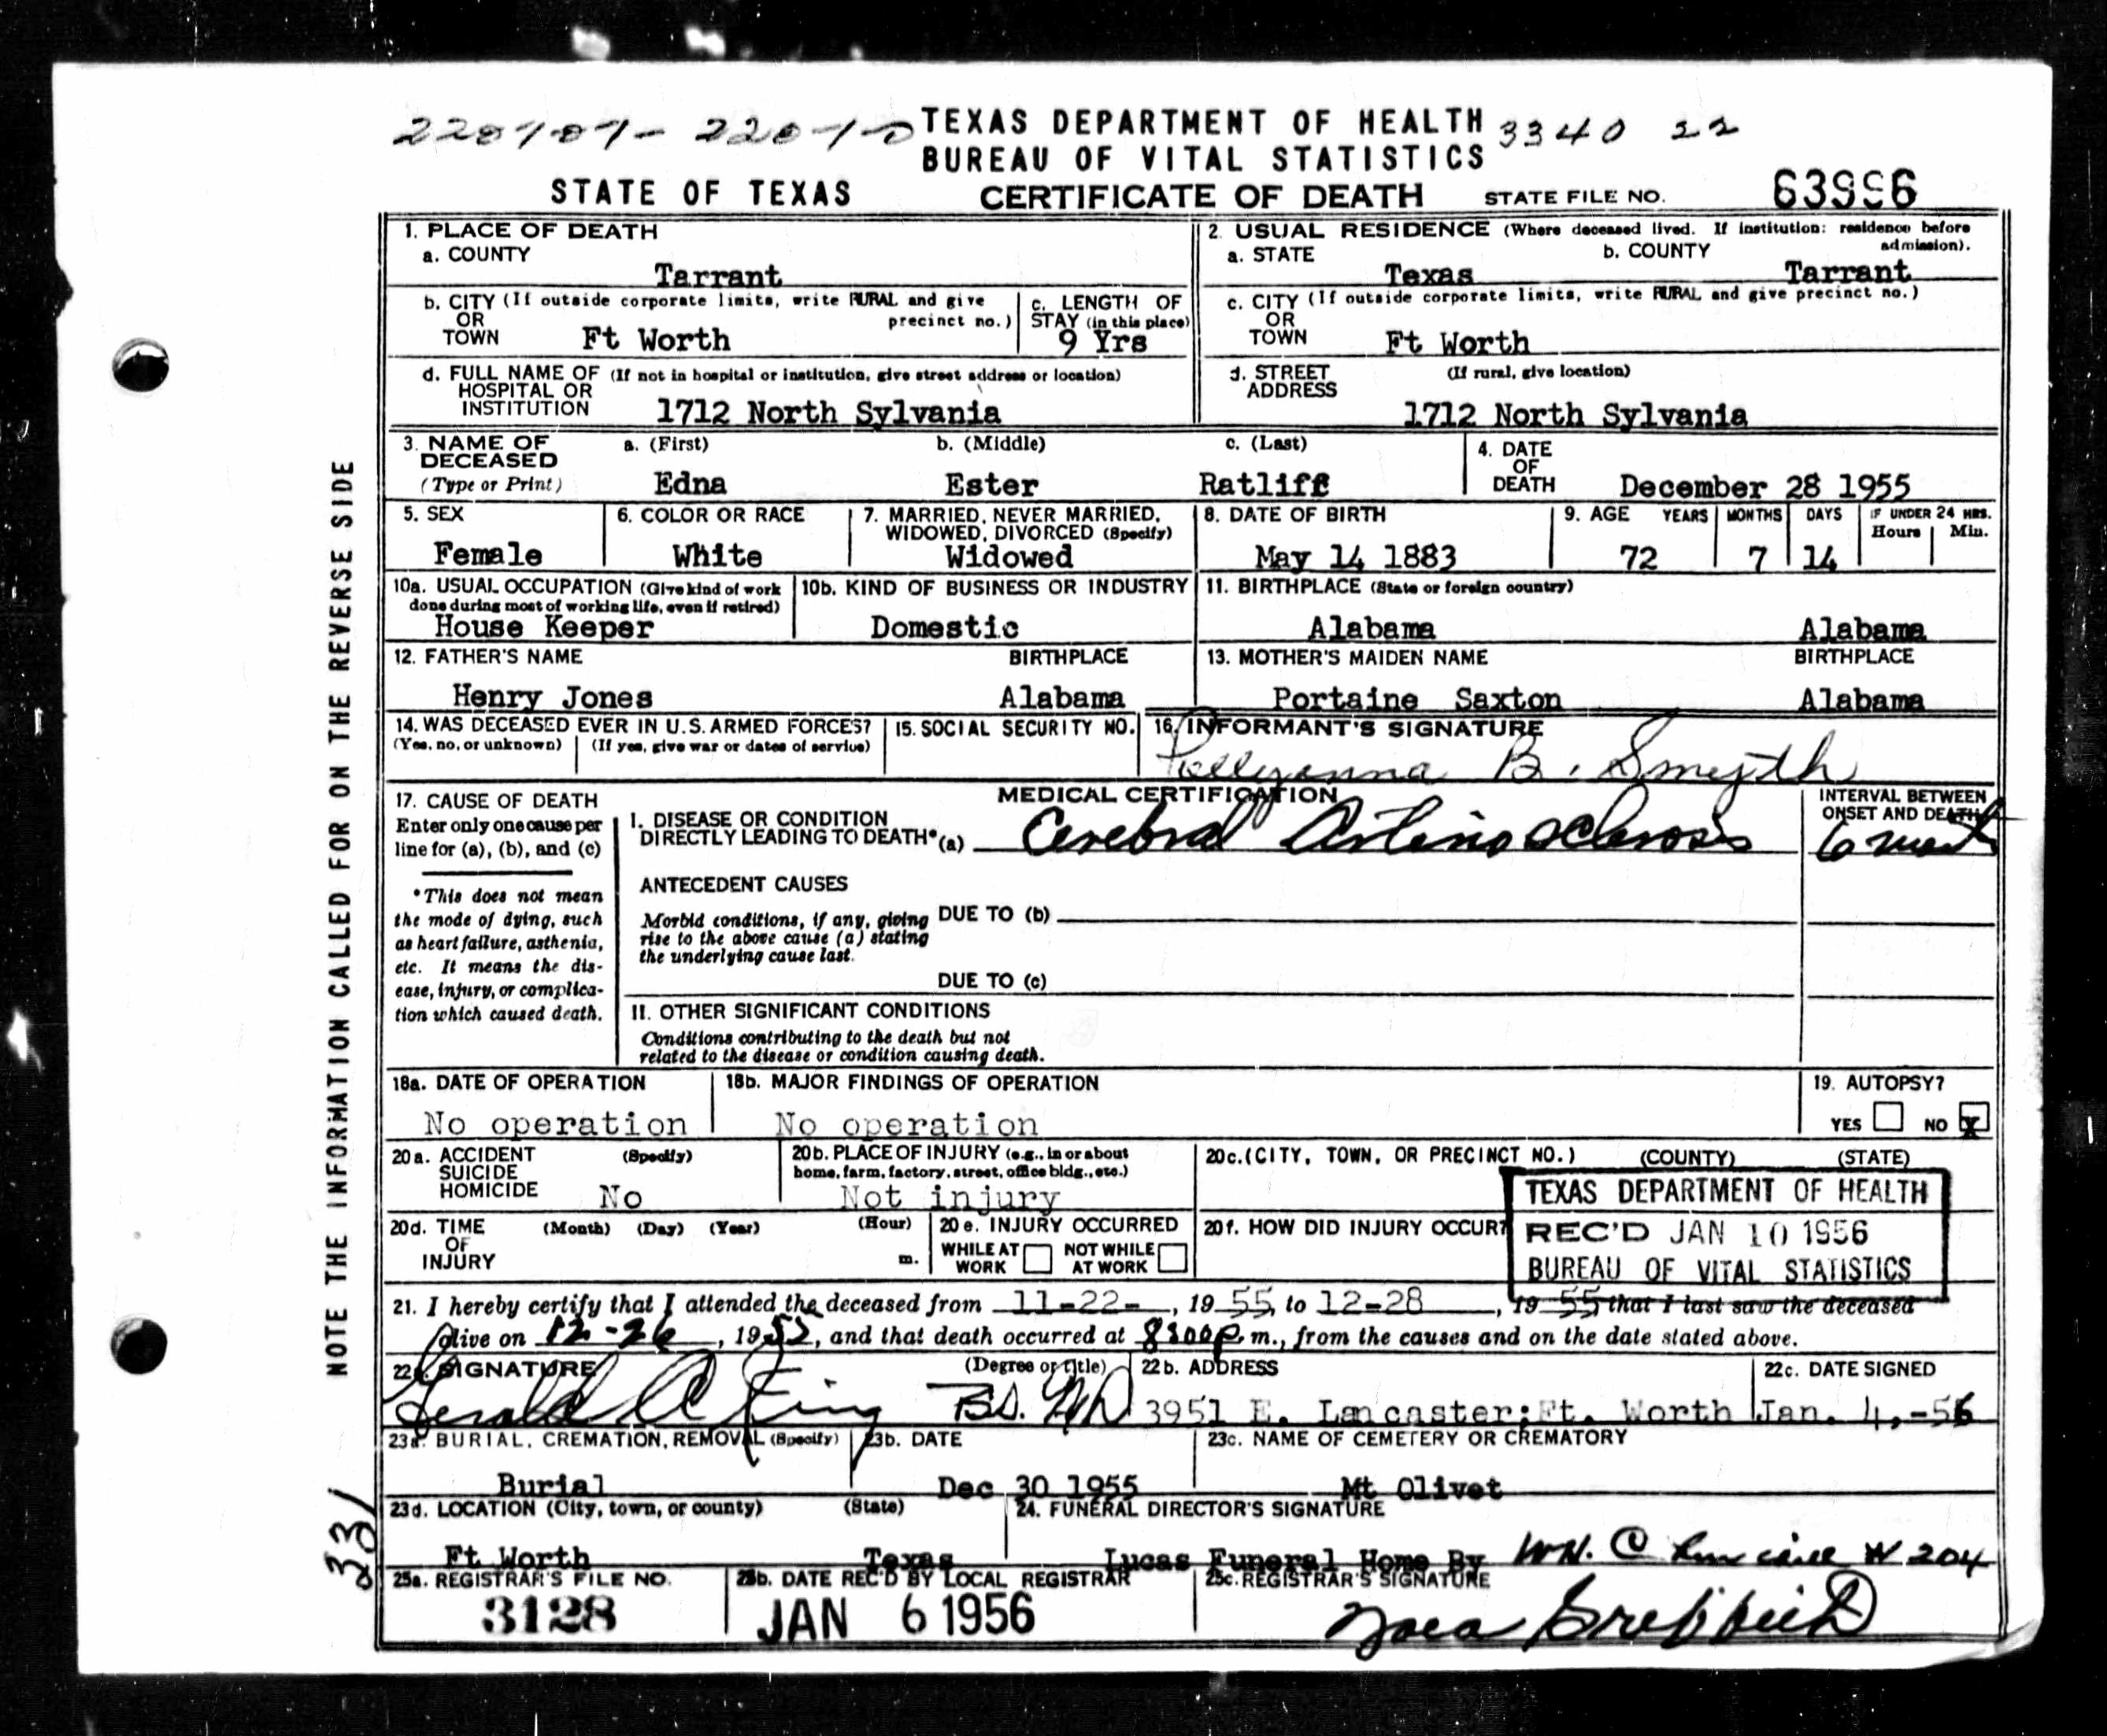 TEXAS DEPARTMENT OF HEALTH 3340 22
BUREAU OF VITAL STATISTICS
STATE OF TEXAS CERTIFICATE OF DEATH STATE FILE NO. 63996
NOTE THE INFORMATION CALLED FOR ON THE REVERSE SIDE
331
1. PLACE OF DEATH
a. COUNTY
Tarrant
2. USUAL RESIDENCE (Where deceased lived. If institution: residence before admission).
a. STATE b. COUNTY
Texas Tarrant
b. CITY (If outside corporate limits, write RURAL and give
OR precinct no.)
TOWN Ft Worth
c. LENGTH OF
STAY (in this place)
9 Yrs
c. CITY (If outside corporate limits, write RURAL and give precinct no.)
OR
TOWN Ft Worth
d. FULL NAME OF (If not in hospital or institution, give street address or location)
HOSPITAL OR
INSTITUTION 1712 North Sylvania
d. STREET (If rural, give location)
ADDRESS
1712 North Sylvania
3. NAME OF a. (First) b. (Middle) c. (Last)
DECEASED
(Type or Print) Edna Ester Ratliff
4. DATE
OF
DEATH December 28 1955
5. SEX
Female
6. COLOR OR RACE
White
7. MARRIED, NEVER MARRIED,
WIDOWED, DIVORCED (Specify)
Widowed
8. DATE OF BIRTH
May 14 1883
9. AGE YEARS MONTHS DAYS IF UNDER 24 HRS.
Hours Min.
72 7 14
10a. USUAL OCCUPATION (Give kind of work
done during most of working life, even if retired)
House Keeper
10b. KIND OF BUSINESS OR INDUSTRY
Domestic
11. BIRTHPLACE (State or foreign country)
Alabama Alabama
12. FATHER'S NAME BIRTHPLACE
Henry Jones Alabama
13. MOTHER'S MAIDEN NAME BIRTHPLACE
Portaine Saxton Alabama
14. WAS DECEASED EVER IN U.S. ARMED FORCES?
(Yes, no, or unknown) (If yes, give war or dates of service)
15. SOCIAL SECURITY NO.
16. INFORMANT'S SIGNATURE
Pollyanna B. Smyth
17. CAUSE OF DEATH
Enter only one cause per
line for (a), (b), and (c)
*This does not mean
the mode of dying, such
as heart failure, asthenia,
etc. It means the dis-
ease, injury, or complica-
tion which caused death.
MEDICAL CERTIFICATION
I. DISEASE OR CONDITION
DIRECTLY LEADING TO DEATH* (a) Cerebral Arteriosclerosis
INTERVAL BETWEEN
ONSET AND DEATH
6
ANTECEDENT CAUSES
Morbid conditions, if any, giving DUE TO (b)
rise to the above cause (a) stating
the underlying cause last.
DUE TO (c)
II. OTHER SIGNIFICANT CONDITIONS
Conditions contributing to the death but not
related to the disease or condition causing death.
18a. DATE OF OPERATION
No operation
18b. MAJOR FINDINGS OF OPERATION
No operation
19. AUTOPSY?
YES NO X
20a. ACCIDENT (Specify)
SUICIDE
HOMICIDE No
20b. PLACE OF INJURY (e.g., in or about
home, farm, factory, street, office bldg., etc.)
Not injury
20c. (CITY, TOWN, OR PRECINCT NO.) (COUNTY) (STATE)
20d. TIME (Month) (Day) (Year) (Hour)
OF
INJURY m.
20e. INJURY OCCURRED
WHILE AT WORK NOT WHILE AT WORK
20f. HOW DID INJURY OCCUR?
TEXAS DEPARTMENT OF HEALTH
REC'D JAN 10 1956
BUREAU OF VITAL STATISTICS
21. I hereby certify that I attended the deceased from 11-22-, 19 55, to 12-28, 19 55 that I last saw the deceased
alive on 12-26, 1955, and that death occurred at 8:00p. m., from the causes and on the date stated above.
22a. SIGNATURE (Degree or title)
Gerald A King BS. MD
22b. ADDRESS
3951 E. Lancaster; Ft. Worth
22c. DATE SIGNED
Jan. 4,-56
23a. BURIAL, CREMATION, REMOVAL (Specify)
Burial
23b. DATE
Dec 30 1955
23c. NAME OF CEMETERY OR CREMATORY
Mt Olivet
23d. LOCATION (City, town, or county) (State)
Ft Worth Texas
24. FUNERAL DIRECTOR'S SIGNATURE
Lucas Funeral Home By Wm. C 204
25a. REGISTRAR'S FILE NO.
3128
25b. DATE REC'D BY LOCAL REGISTRAR
JAN 6 1956
25c. REGISTRAR'S SIGNATURE